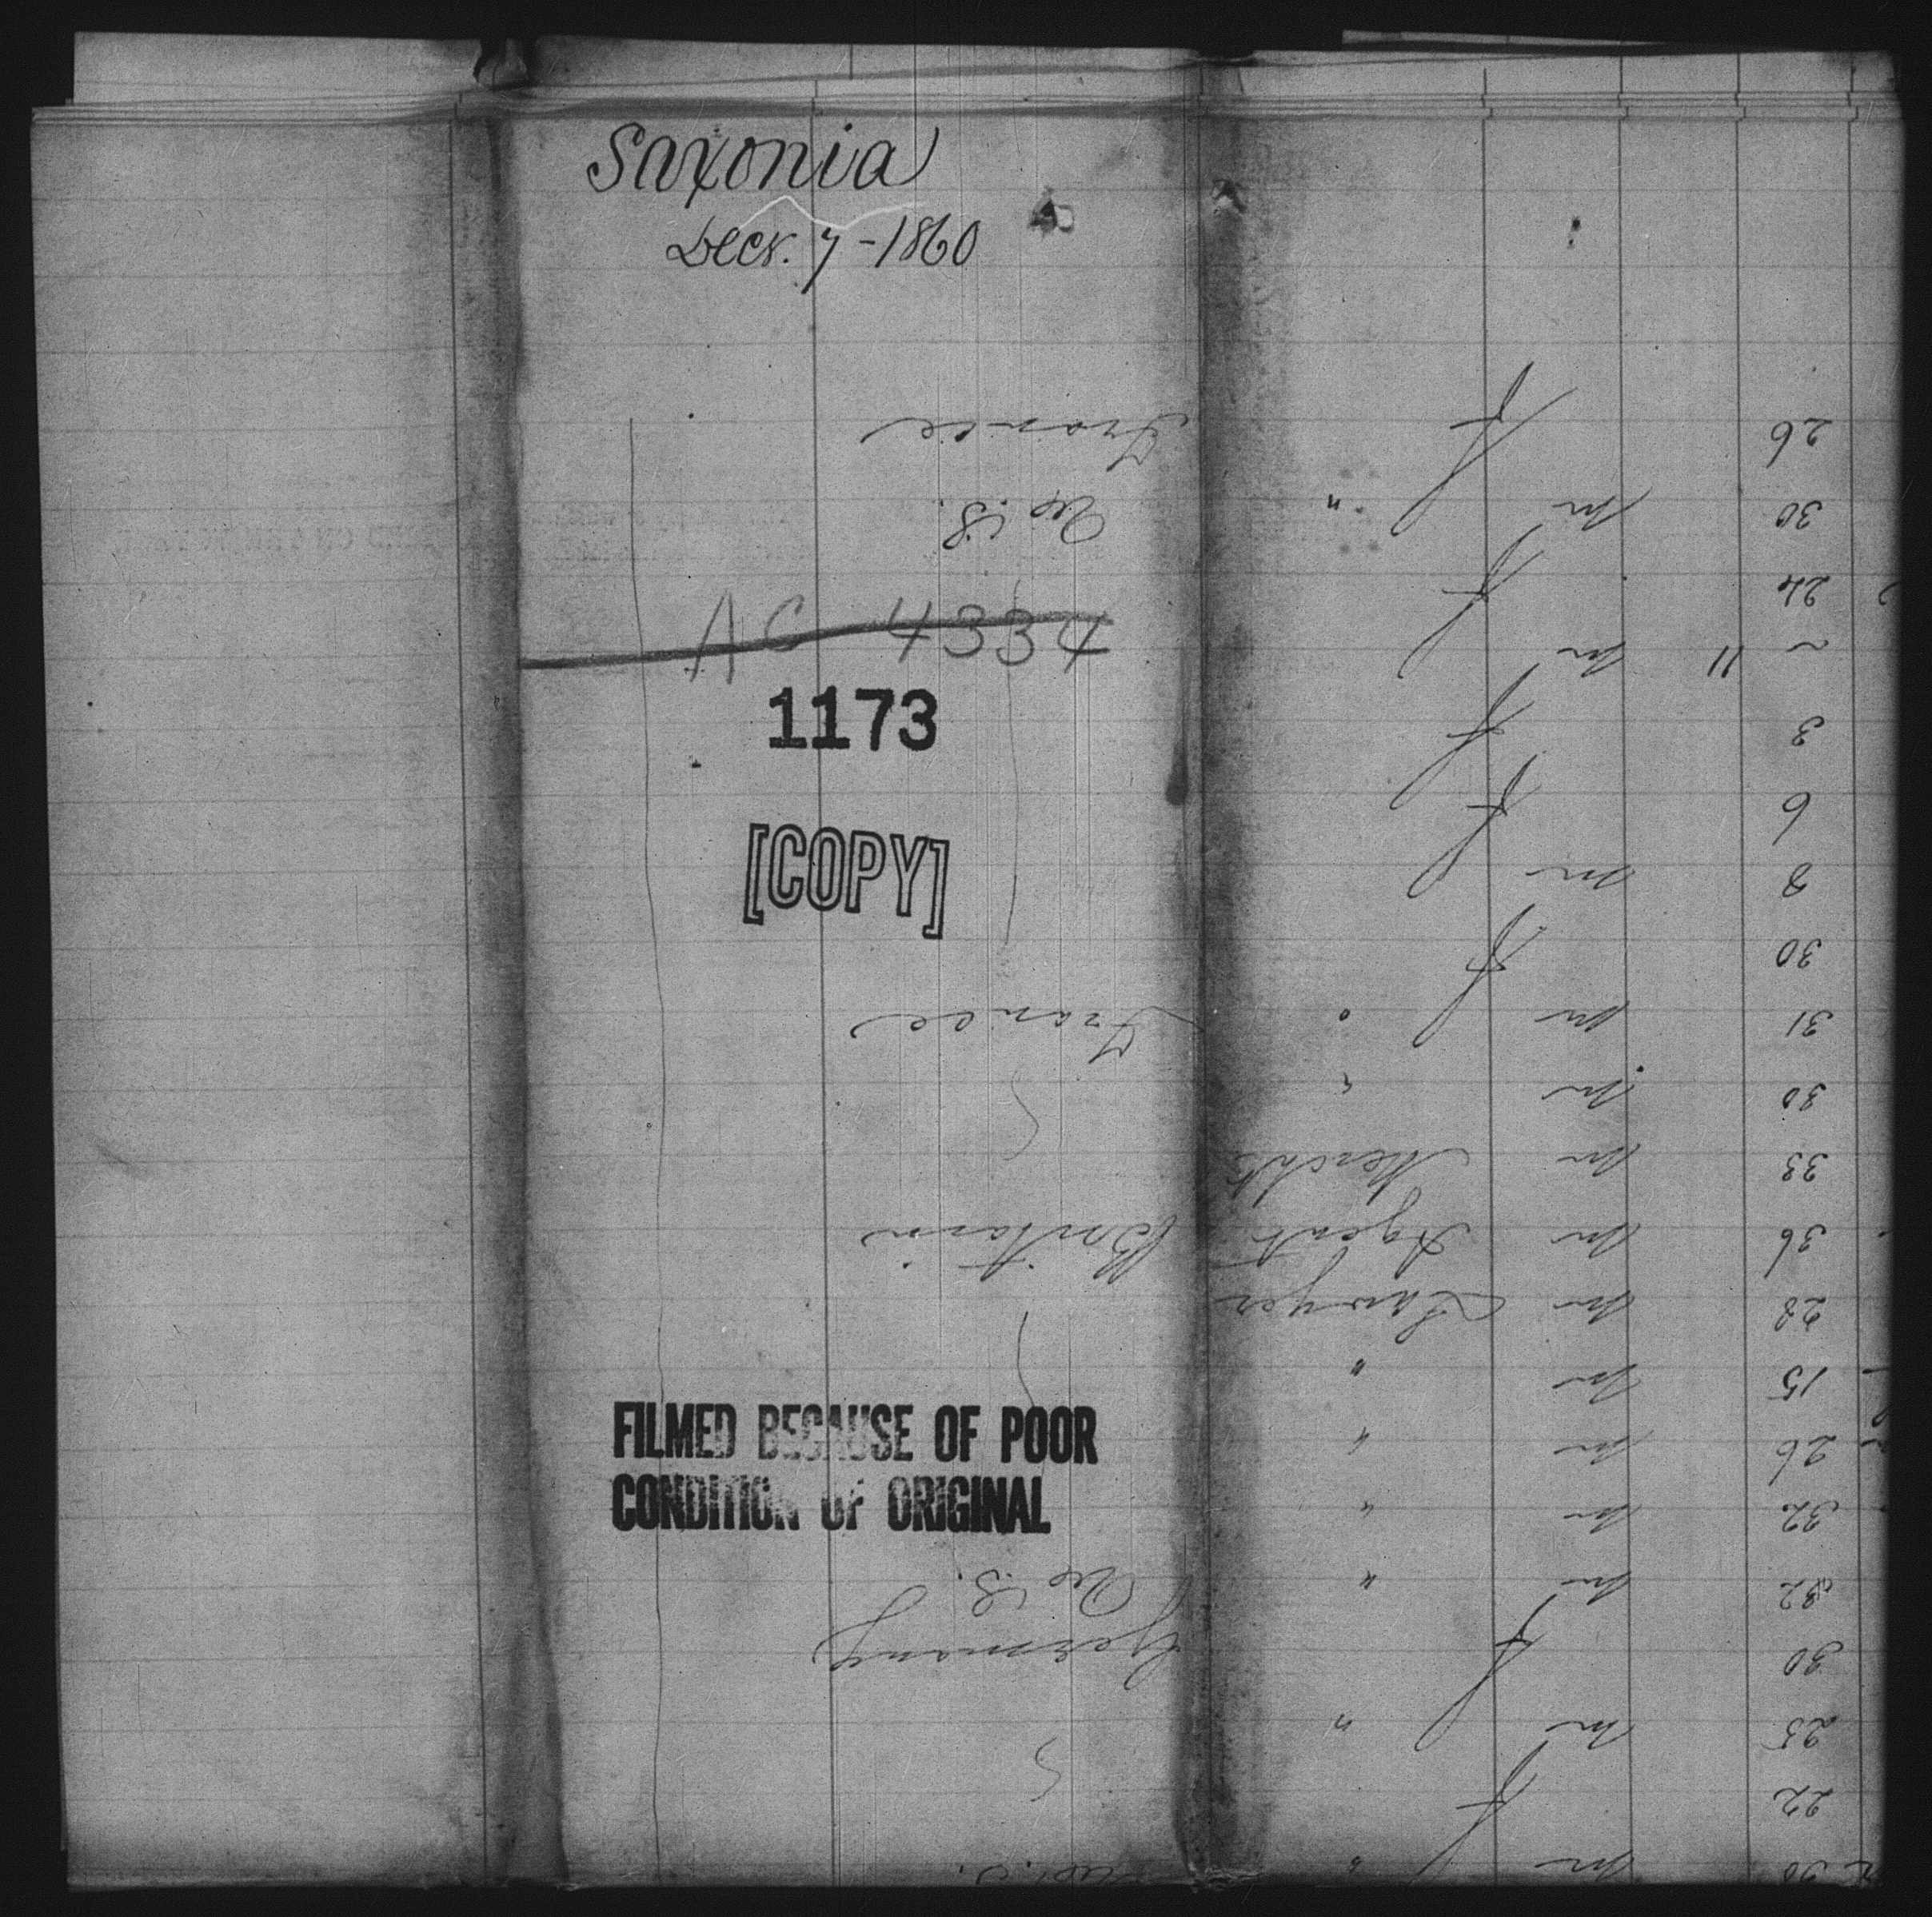 Saxonia
Decr. 7 - 1860
AC 4334
1173
[COPY]
FILMED BECAUSE OF POOR
CONDITION OF ORIGINAL
30 m "
22 f
25 m "
30 f Germany
32 m " U.S.
32 m "
26 m "
15 m "
28 m Lawyer
36 m Agent Britain
33 m Mercht
30 m "
31 m " France
30 f
8 m
6 f
3 f
11 m
24 f
30 m " U.S.
26 f France